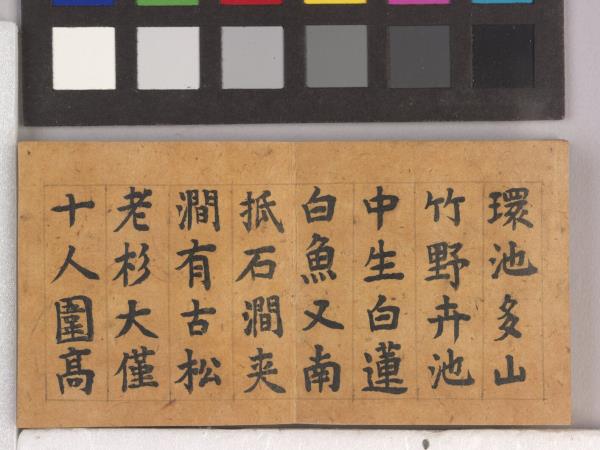 環池多山
竹野卉池
中生白蓮
白魚又南
抵石澗夾
澗有古松
老杉大僅
十人圍高